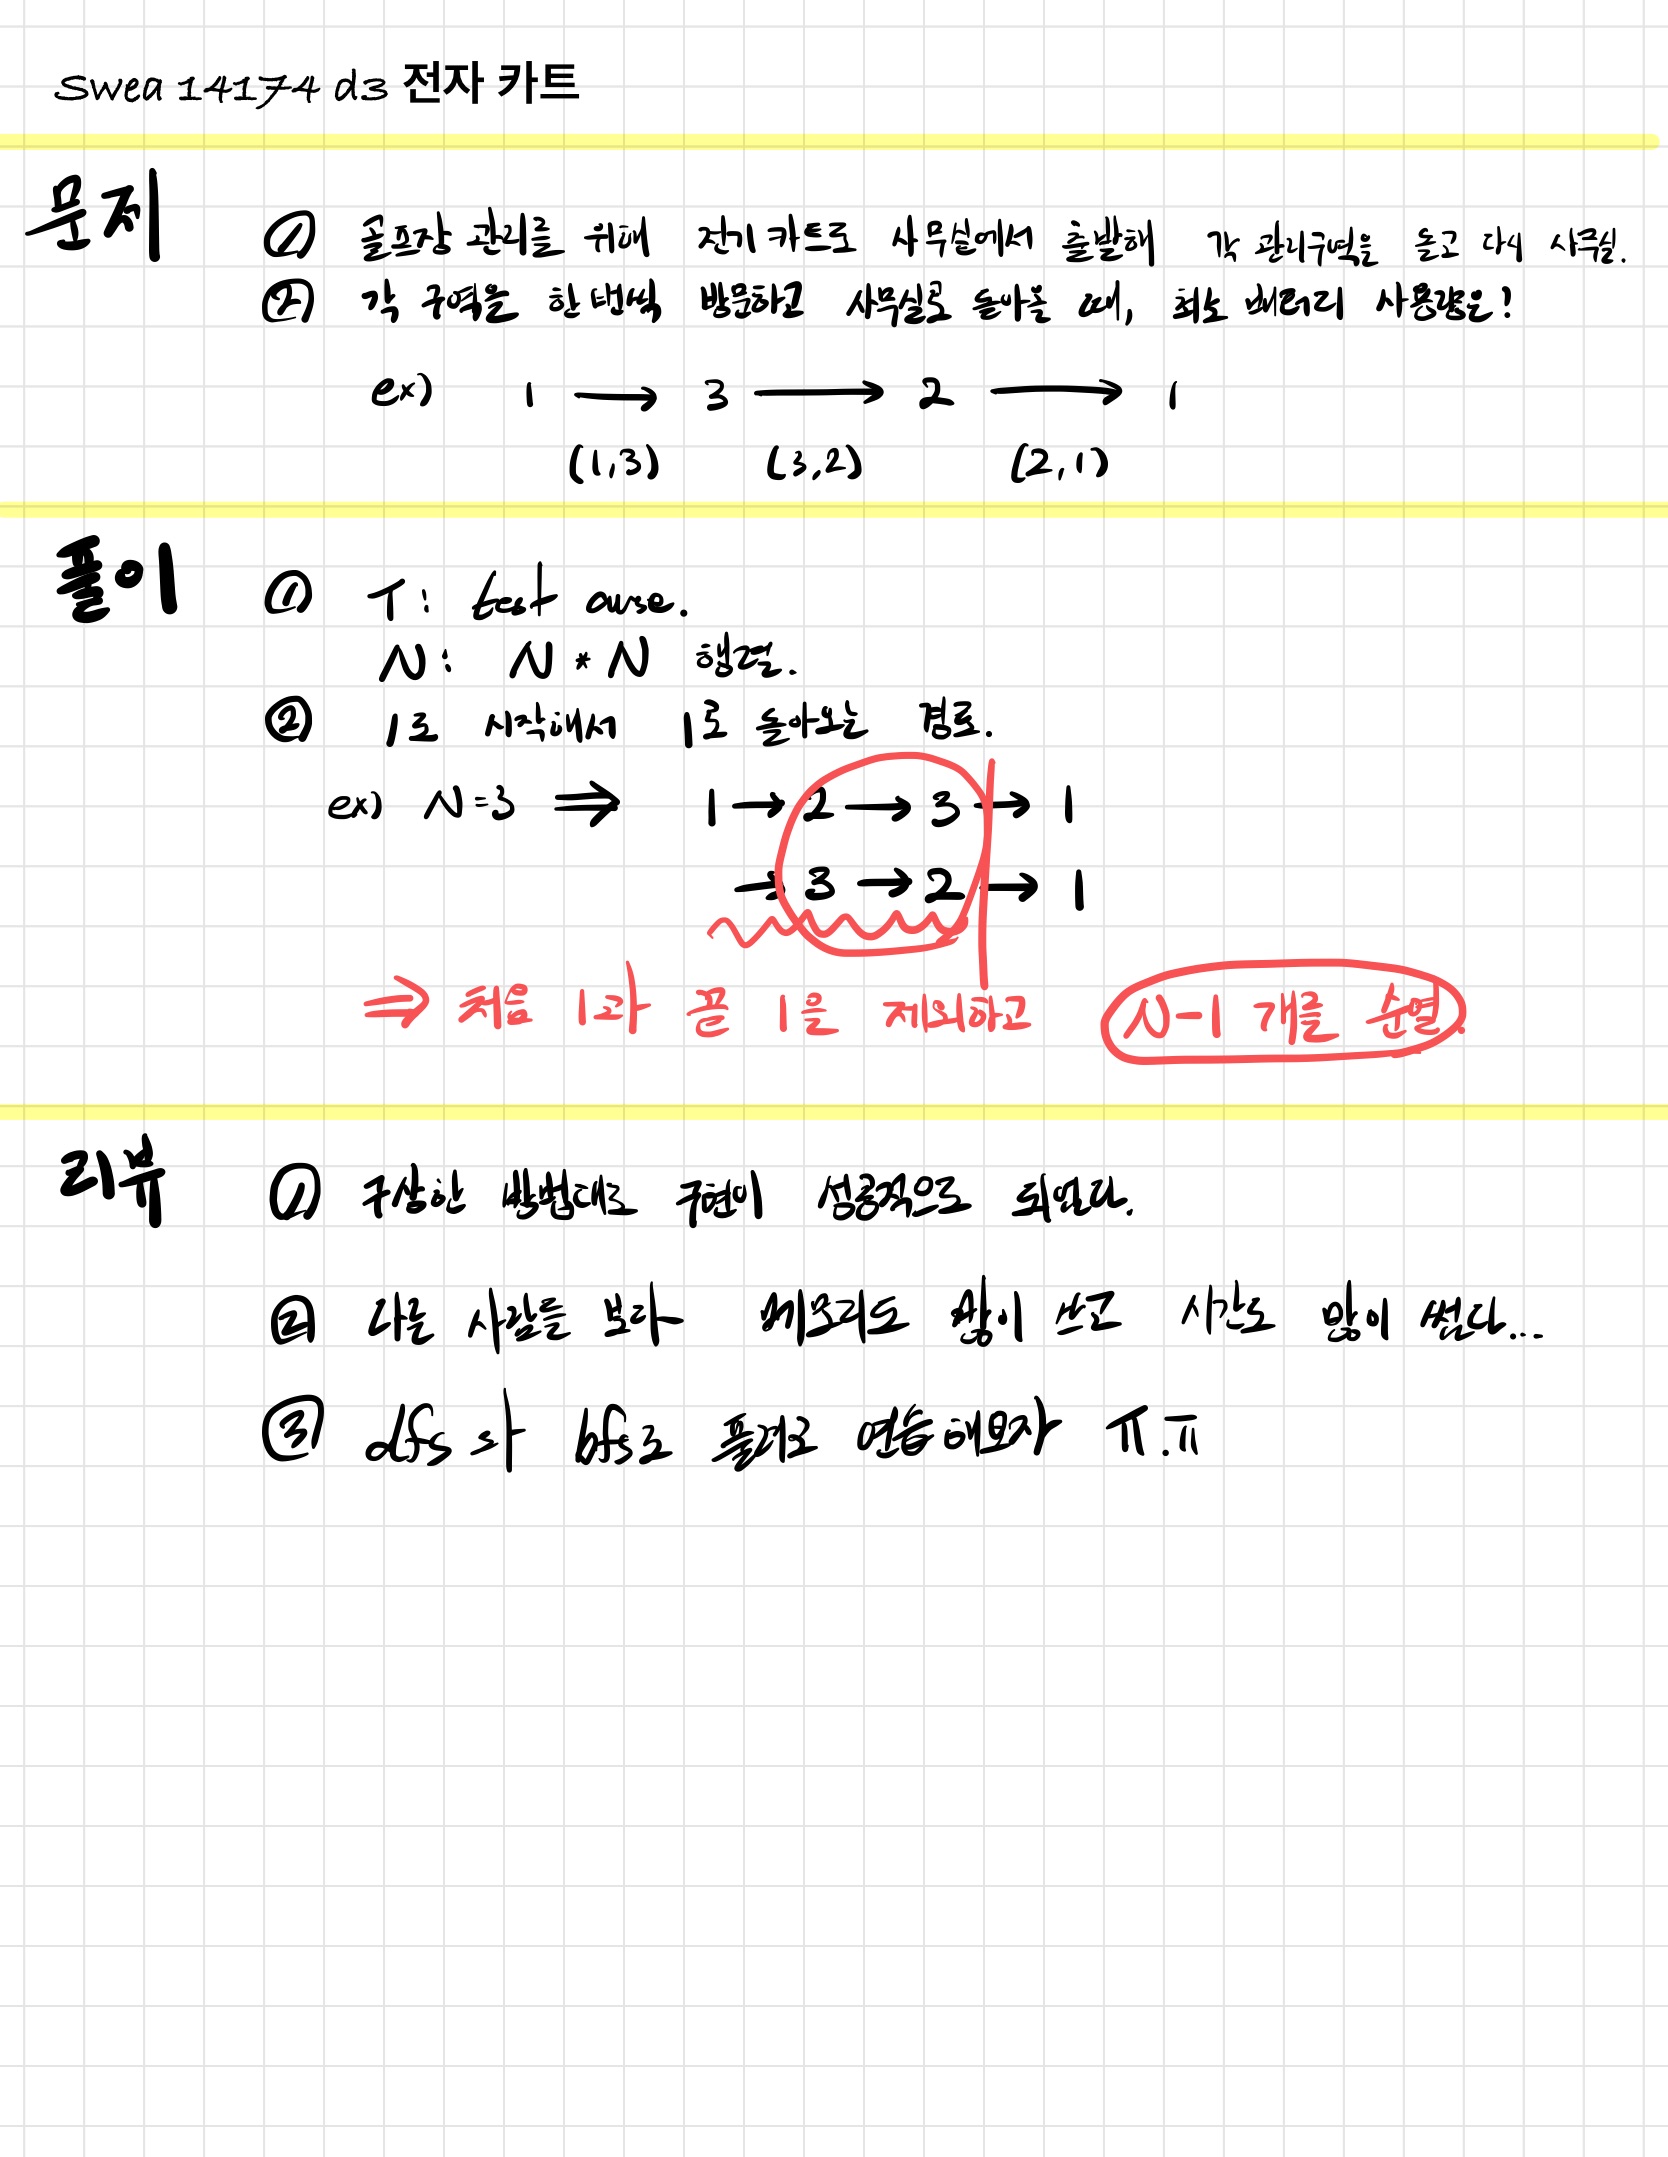 Swea 14174 d3 전자 카트
문제
① 골프장 관리를 위해 전기카트로 사무실에서 출발해 각 관리구역을 돌고 다시 사무실.
② 각 구역을 한번씩 방문하고 사무실로 돌아올 때, 최소 배터리 사용량은!
ex) 1 → 3 → 2 → 1
(1,3) (3,2) (2,1)
풀이
① T: test case.
N: N * N 행렬.
② 1로 시작해서 1로 돌아오는 경로.
ex) N=3 ⇒ 1 → 2 → 3 → 1
→ 3 → 2 → 1
⇒ 처음 1과 끝 1을 제외하고 N-1 개를 순열.
리뷰
① 구상한 방법대로 구현이 성공적으로 되었다.
② 다른 사람들 보다 메모리도 많이 쓰고 시간도 많이 썼다...
③ dfs와 bfs로 풀려고 연습해보자 ㅠ.ㅠ